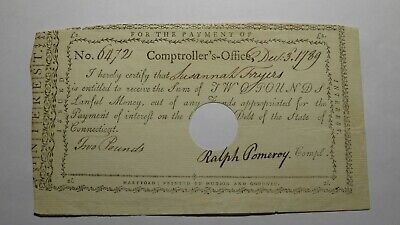 FOR THE PAYMENT OF
£2. £2.
No. 6472 Comptroller's-Office, Dec. 3d. 1789
I hereby certify that Susannah
is entitled to receive the Sum of TWO POUNDS
Lawful Money, out of any Funds appropriated for the
Payment of interest on the Debt of the State of
Connecticut.
Two Pounds
Ralph Pomeroy, Compt.
HARTFORD: PRINTED BY HUDSON AND GOODWIN.
INTEREST.
INTEREST.